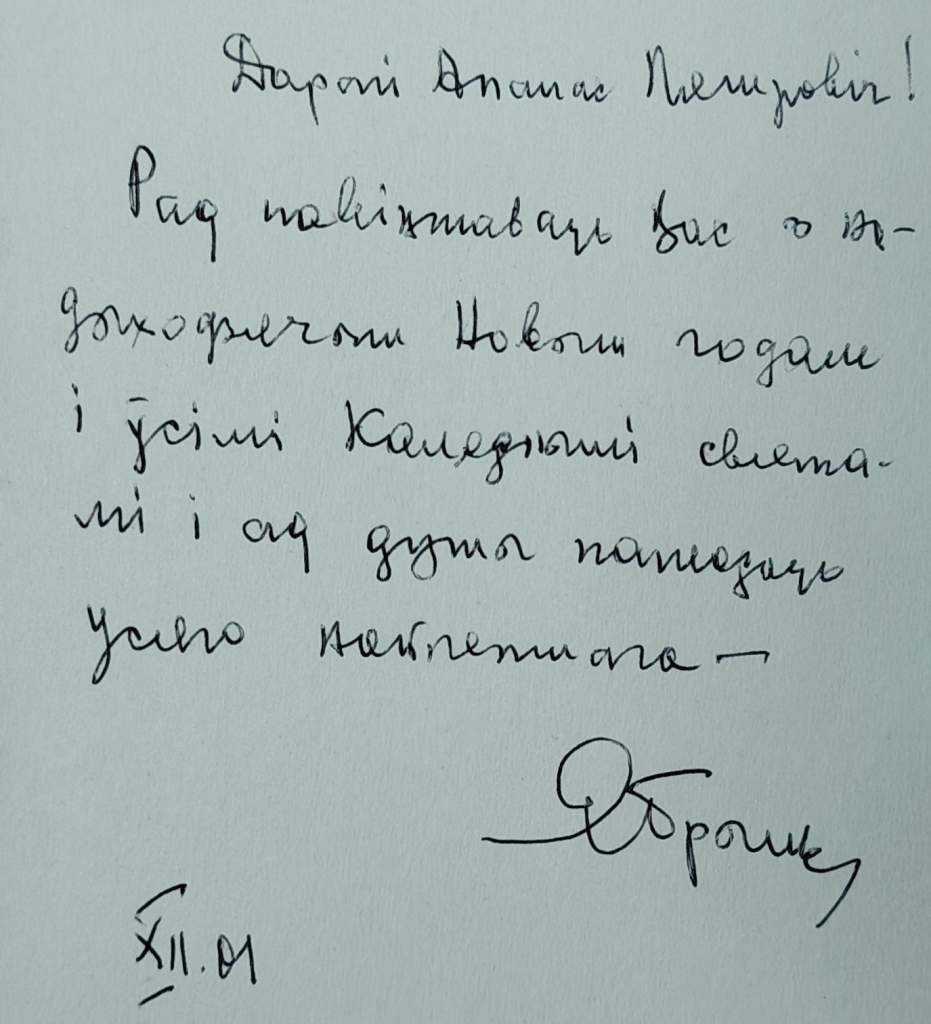 Дарогі Апанас Пятровіч!
Рад павіншаваць Вас з на-
дыходзячым Новым годам
і ўсімі Каляднымі свята-
мі і ад душы пажадаць
Усяго найлепшага —
XII.01